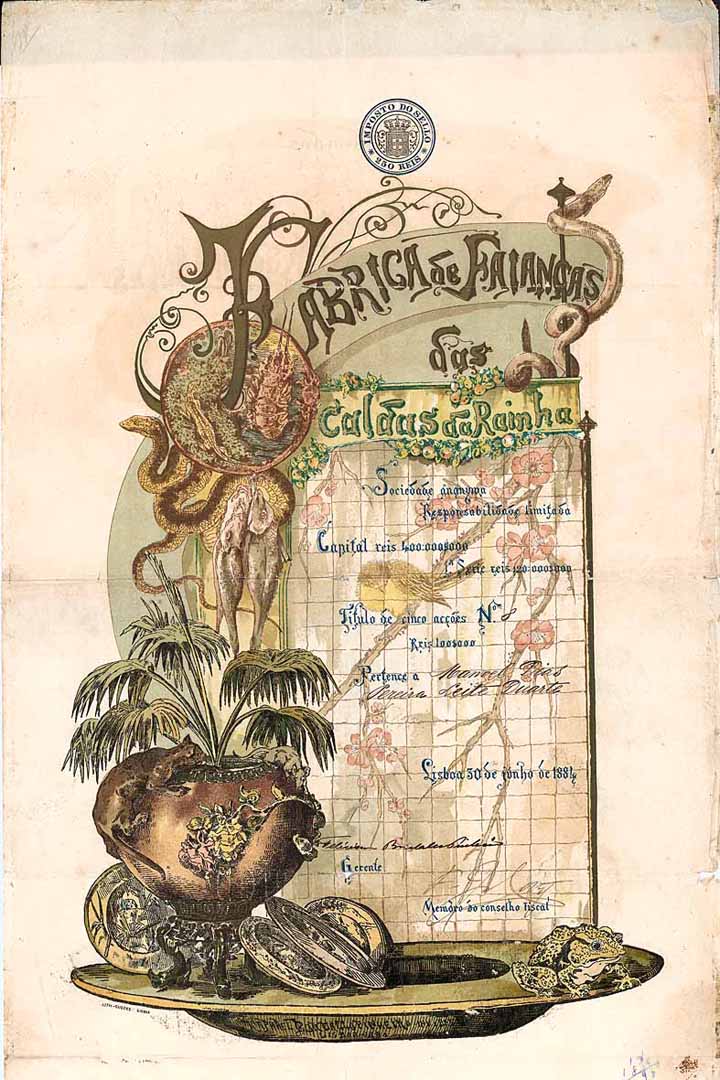 IMPOSTO DO SELLO
250 REIS
FABRICA de FAIANÇAS
das
Caldas da Rainha
Sociedade anonyma
Responsabilidade limitada
Capital reis 1,00:000$000
1ª Serie reis 120:000$000
Titulo de cinco acções Nº 8
Reis 100$000
Pertence a Manoel Dias
Pereira Leite Duarte
Lisboa 30 de junho de 1884
Gerente
Membro do conselho fiscal